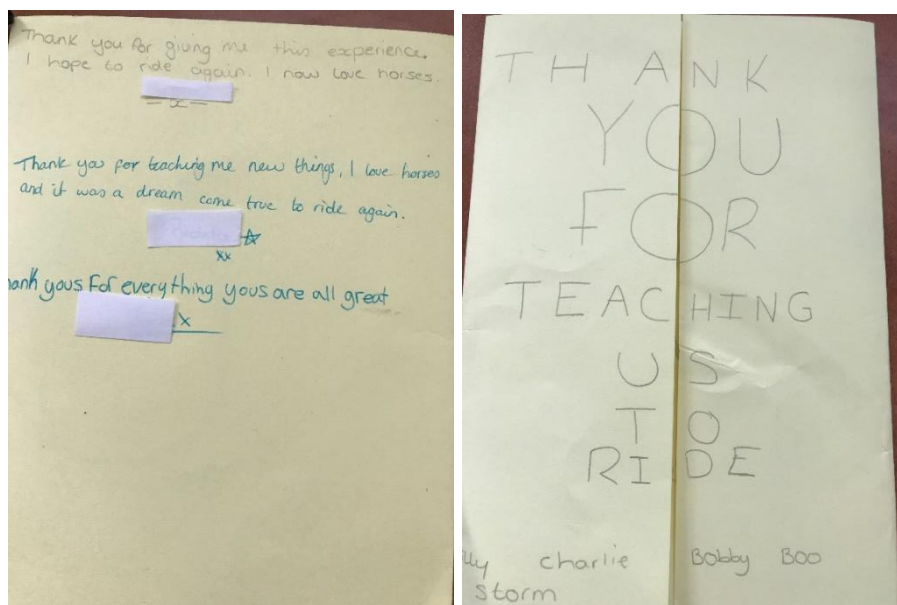 Thank you for giving me this experience.
I hope to ride again. I now love horses.
— x —
Thank you for teaching me new things, I love horses
and it was a dream come true to ride again.
xx
yous for everything yous are all great
x
THANK
YOU
FOR
TEACHING
US
TO
RIDE
charlie Bobby Boo
storm